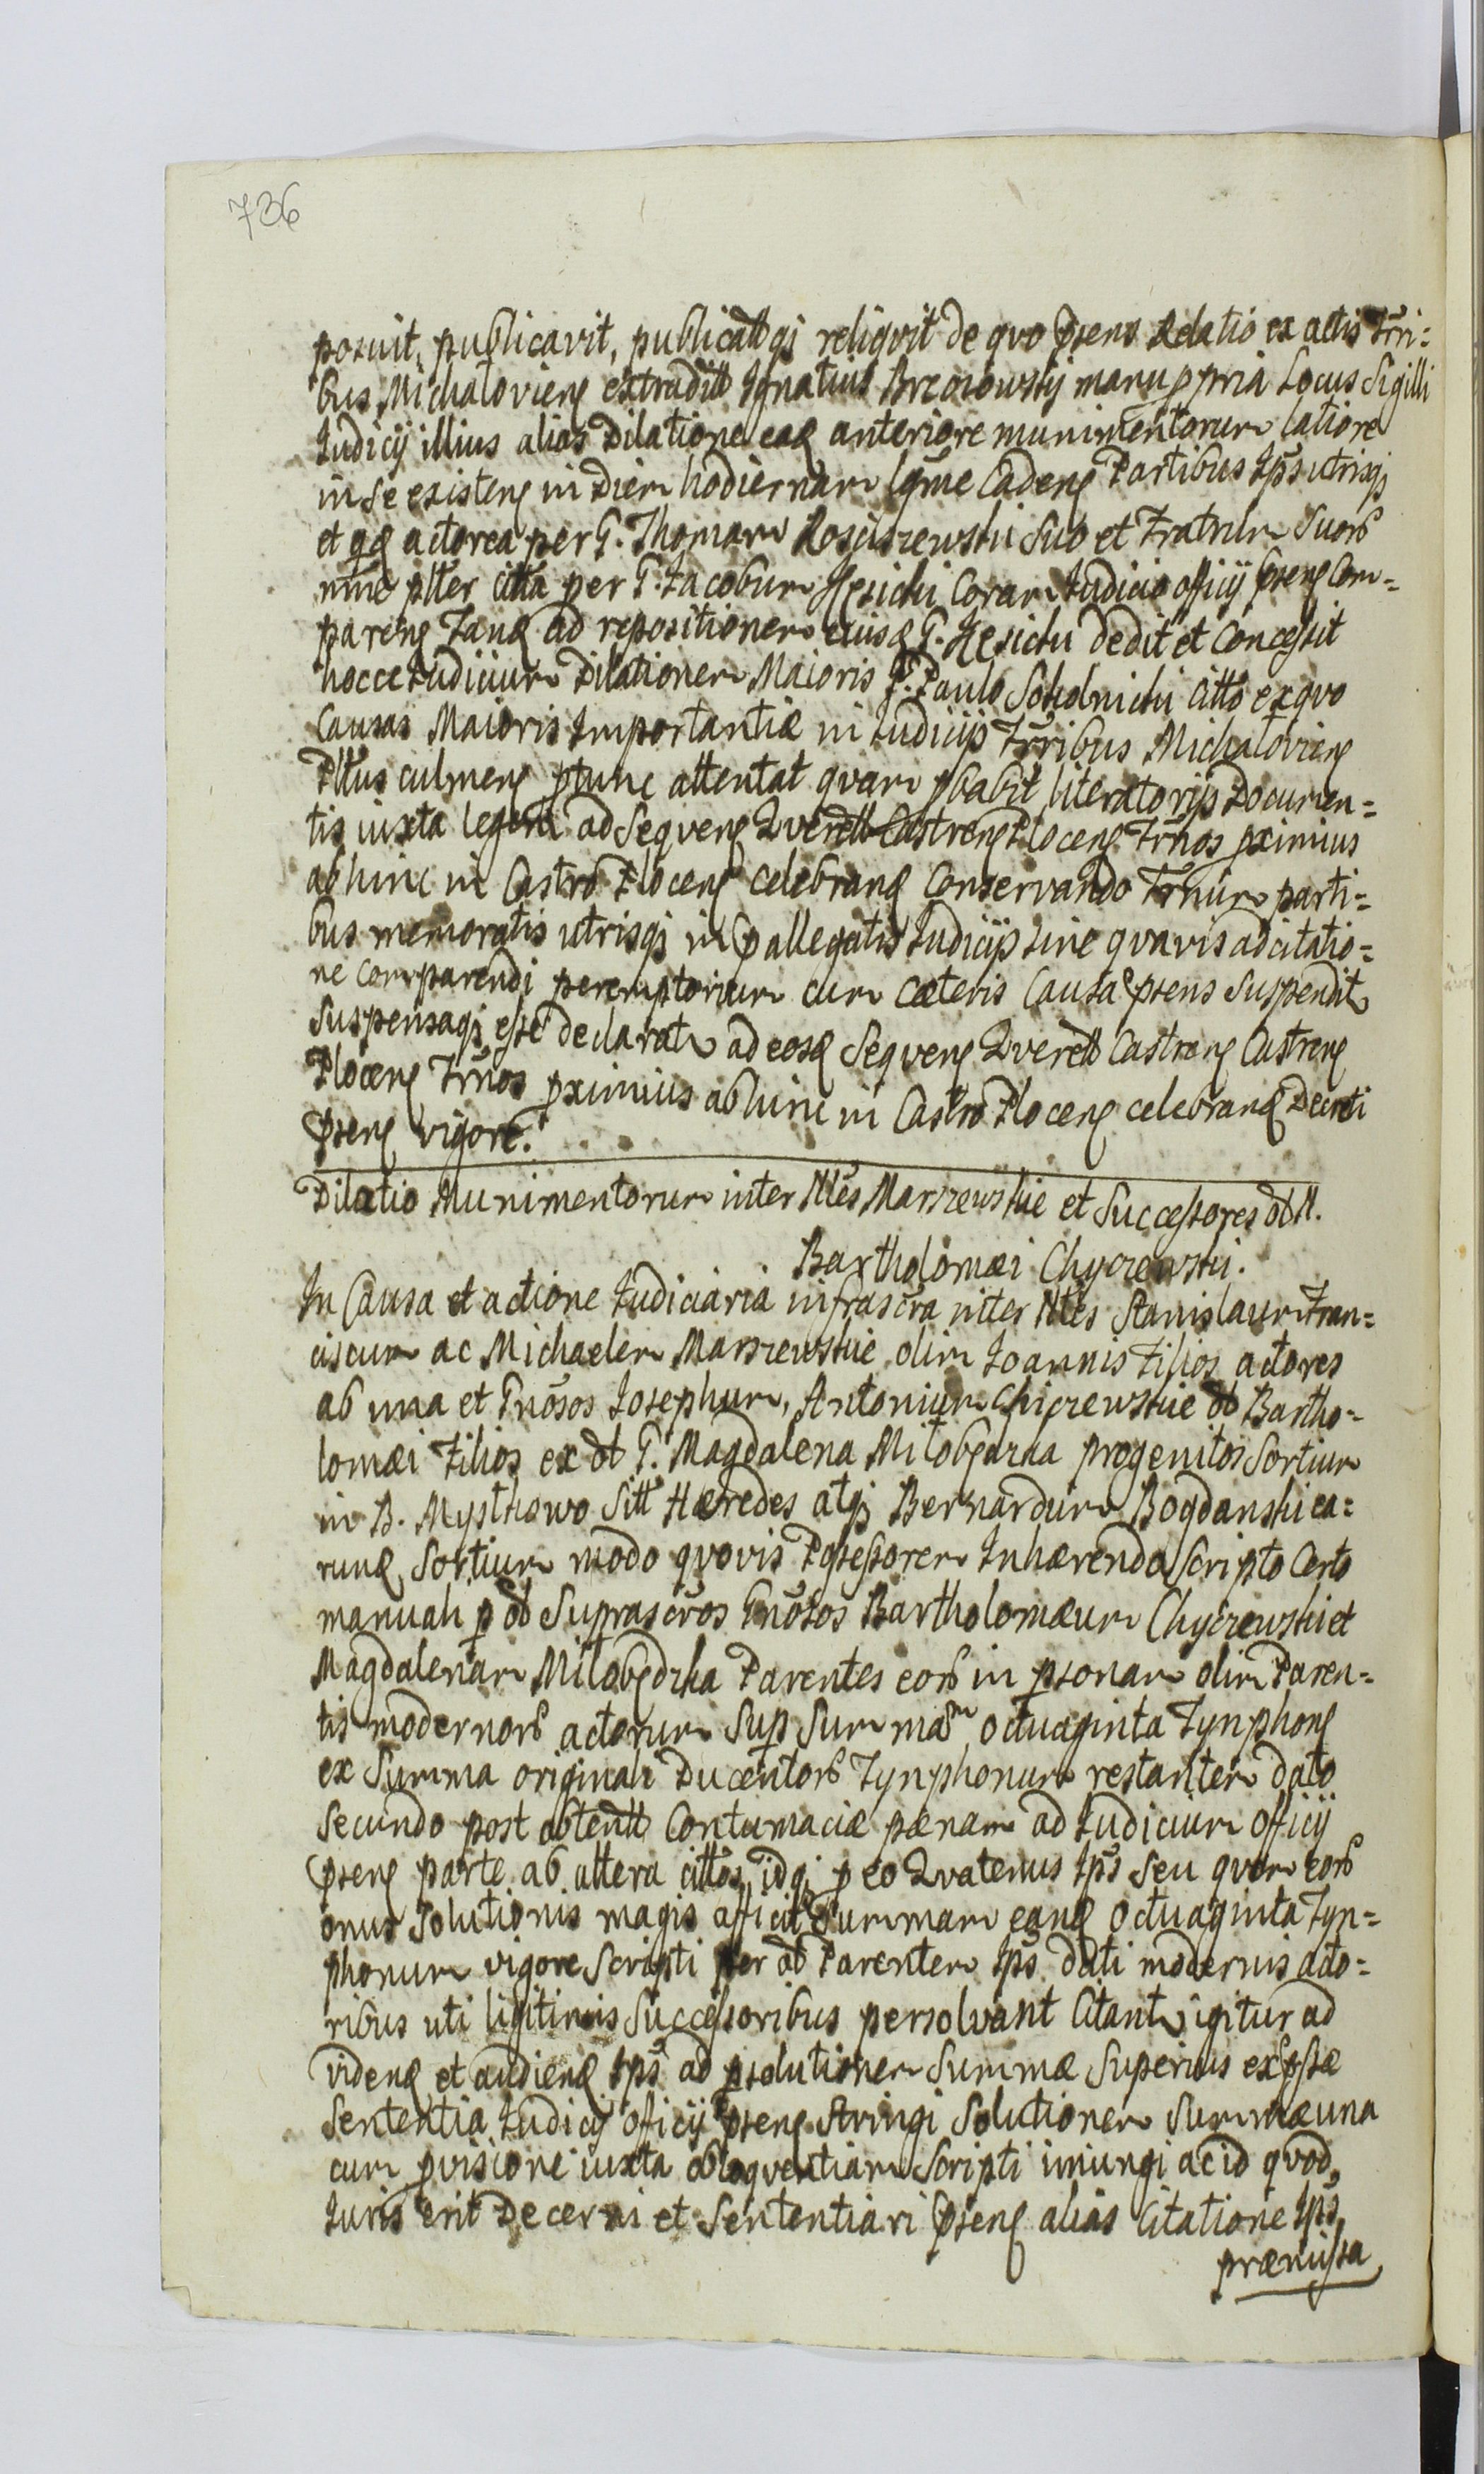 736
posuit, publicavit, publicatt qj reliqvit de qvo psens Relatio ex actis Trri=
bus Michaloviens extraditt Ignatius Brezozowskj manu ppria Locus Sigilli
Judicij illius alias Dilatione eaq anteriore munimentorum latiore
in se existens in Diem hodiernam lgme Cadens Partibus Ips utrisqj
et qq actorea per G. Thomam Rosciszewski Suo et Fratrum Suorb
nine ptter citta per G. Jacobum Hesichi Coram Judicio officij psens Com=
parens Tanq ad repositionem eiusq G. Hesichi dedit et Concessit
hocce Judicium Dilationem Maioris G. Paulo Sokolnicki citto ex qvo
Causas Maioris Importantiæ in Judicijs Trribus Michaloviens
Pttus culmens ptunc attentat qvam pbabit literatorijs Documen=
tis iuxta legem ad Seqvens Qverett Castrens Plocens Trnos pximius
abhinc in Castro Plocens celebranq Conservando Trnum parti=
bus memoratis utrisqj in pallegatis Judicijs sine qvavis adcitatio=
ne comparendi peremptorium cum cæteris Causa psens Suspendit
Suspensaqj esse declarat ad eosq Seqvens Qverett Castrens Castrens
Plocens Trnos pximius abhinc in Castro Plocens celebranq Decreti
psens vigore.
Dilatio Munimentorum inter Nttes Marszewskie et Successores ott N.
Bartholomæi Chyczewski.
In Causa et actione Judiciaria infrascra inter Nttes Stanislaum Fran=
ciscum ac Michaelem Marszewskie olim Joannis Filios actores
ab una et Gnosos Josephum, Antonium Chiczewskie ott Bartho=
lomæi Filios ex ott G. Magdalena Milobędzka progenitos Sortium
in B. Mystkowo Sitt Hæredes atqj Bernardum Bogdanski ea=
runq Sortium modo qvovis Possessorem Inhærendo Scripto Certo
manuali p ott Suprascros Gnosos Bartholomæum Chyczewski et
Magdalenam Milobędzka Parentes eorb in psonam olim Paren=
tis modernorb actorum Sup Summam octuaginta Tynphons
ex Summa originali Ducentorb Tynphonum restantem dato
Secundo post obtentt Contumaciæ pænam ad Judicium Officij
psens parte ab altera cittos, idqj p eo Qvatenus Ips seu qvem eorb
onus Solutionis magis afficit Summam eanq octuaginta Tyn=
phonum vigore Scripti per ott Parentem Ips dati modernis acto=
ribus uti ligitimis Successoribus persolvant Citant igitur ad
videnq et audienq Ips ad psolutionem Summæ Superius expssæ
Sententia Judicij officij psens Stringi Solutionem Summæ una
cum pvisione iuxta obloqventiam Scripti iniungi ac id qvod
Juris erit Decerni et Sententiari psens alias Citatione Ips
præmissa